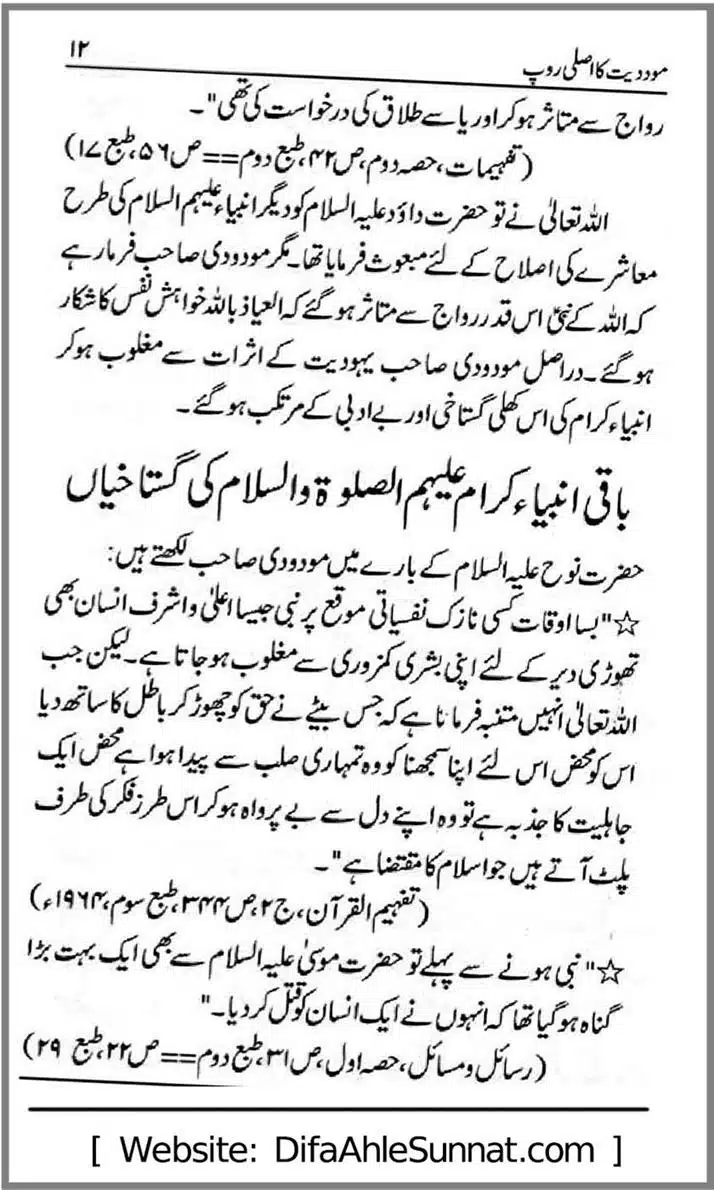 ۱۲
مودودیت کا اصلی روپ
رواج سے متاثر ہو کر اوریا سے طلاق کی درخواست کی تھی"۔
(تفہیمات، حصہ دوم، ص ۴۲، طبع دوم == ص ۵۶، طبع ۱۷)
اللہ تعالیٰ نے تو حضرت داؤد علیہ السلام کو دیگر انبیاء علیہم السلام کی طرح
معاشرے کی اصلاح کے لئے مبعوث فرمایا تھا۔ مگر مودودی صاحب فرما رہے
کہ اللہ کے نبیؑ اس قدر رواج سے متاثر ہو گئے کہ العیاذ باللہ خواہش نفس کا شکار
ہو گئے۔ دراصل مودودی صاحب یہودیت کے اثرات سے مغلوب ہو کر
انبیاء کرام کی اس کھلی گستاخی اور بے ادبی کے مرتکب ہو گئے۔
باقی انبیاء کرام علیہم الصلوۃ والسلام کی گستاخیاں
حضرت نوح علیہ السلام کے بارے میں مودودی صاحب لکھتے ہیں:
☆ "بسا اوقات کسی نازک نفسیاتی موقع پر نبی جیسا اعلیٰ و اشرف انسان بھی
تھوڑی دیر کے لئے اپنی بشری کمزوری سے مغلوب ہو جاتا ہے۔ لیکن جب
اللہ تعالیٰ انہیں متنبہ فرماتا ہے کہ جس بیٹے نے حق کو چھوڑ کر باطل کا ساتھ دیا
اس کو محض اس لئے اپنا سمجھنا کہ وہ تمہاری صلب سے پیدا ہوا ہے محض ایک
جاہلیت کا جذبہ ہے تو وہ اپنے دل سے بے پرواہ ہو کر اس طرز فکر کی طرف
پلٹ آتے ہیں جو اسلام کا مقتضا ہے"۔
(تفہیم القرآن، ج ۲، ص ۳۴۴، طبع سوم، ۱۹۶۴ء)
☆ "نبی ہونے سے پہلے تو حضرت موسیٰ علیہ السلام سے بھی ایک بہت بڑا
گناہ ہو گیا تھا کہ انہوں نے ایک انسان کو قتل کر دیا۔"
(رسائل و مسائل، حصہ اول، ص ۳۱، طبع دوم == ص ۲۲، طبع ۲۹)
[ Website: DifaAhleSunnat.com ]